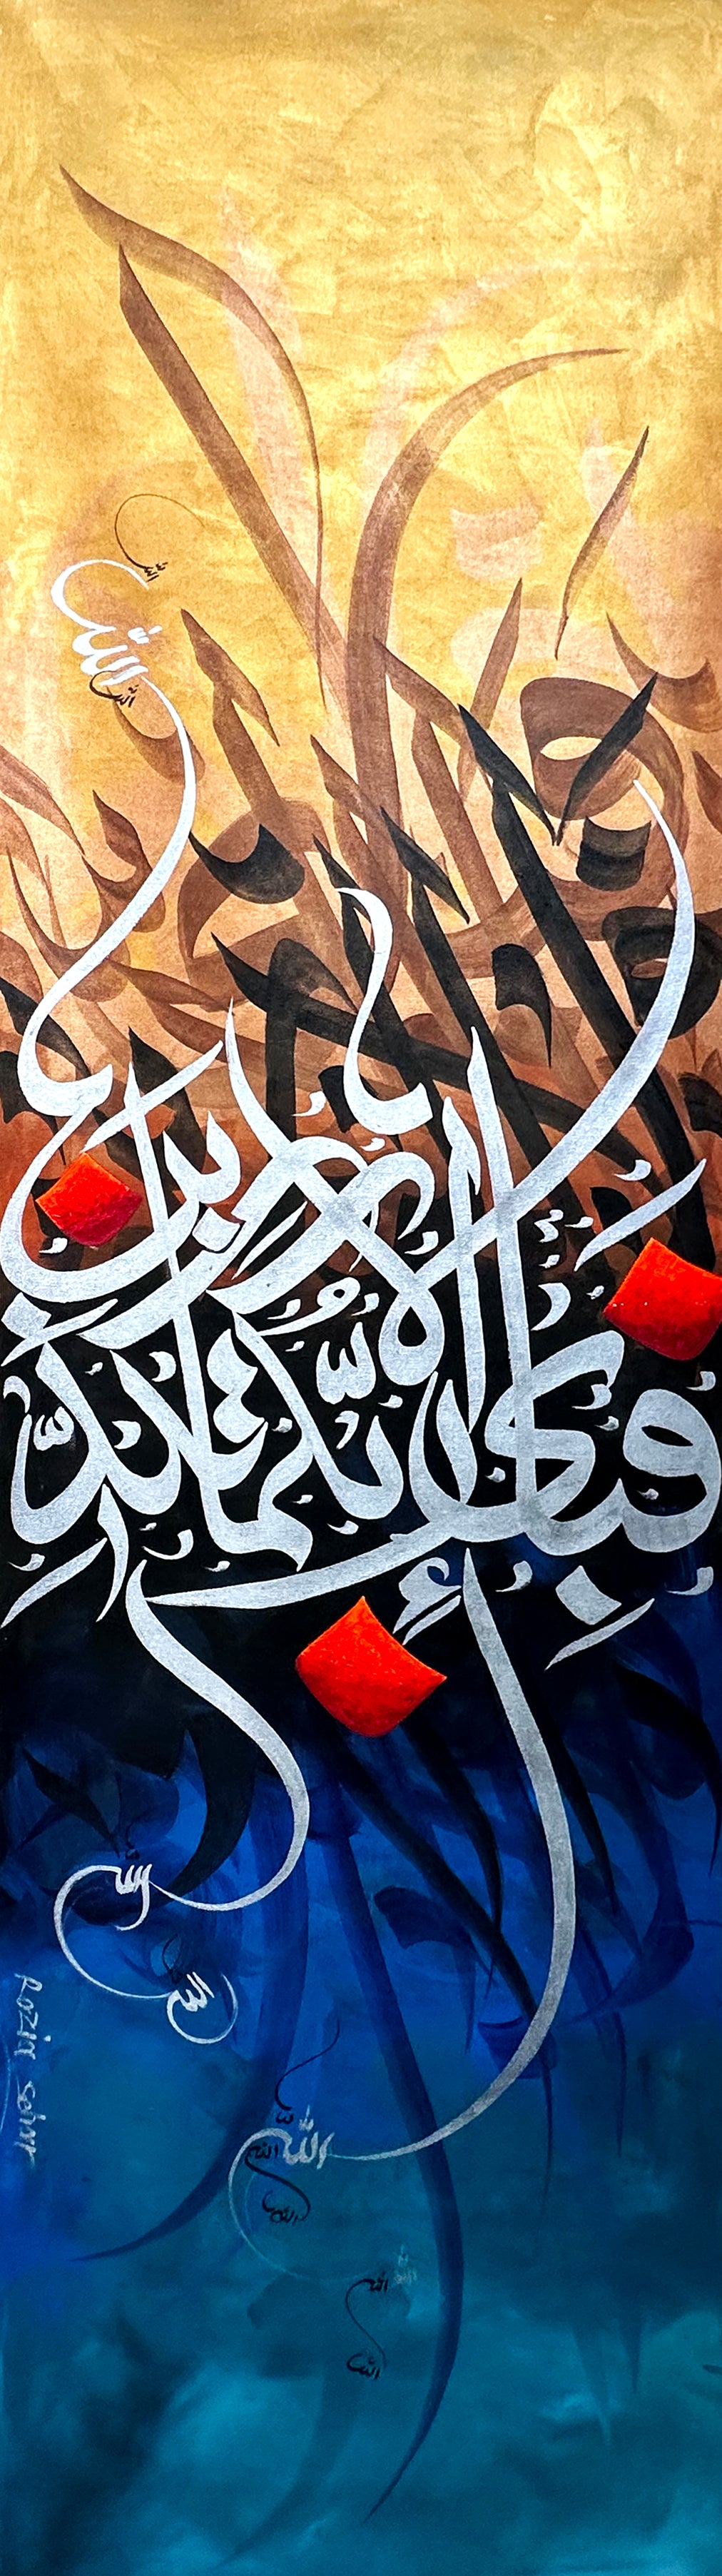 فَبِأَيِّ آلَاءِ رَبِّكُمَا تُكَذِّبَانِ
الله
الله
الله
الله
الله
الله
الله
Rozia Sehar